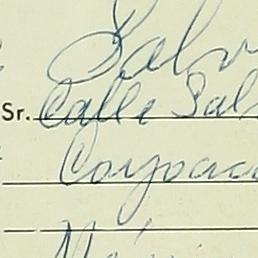 Salv
Sr. Calle Sal
Coyoaca
Méxi